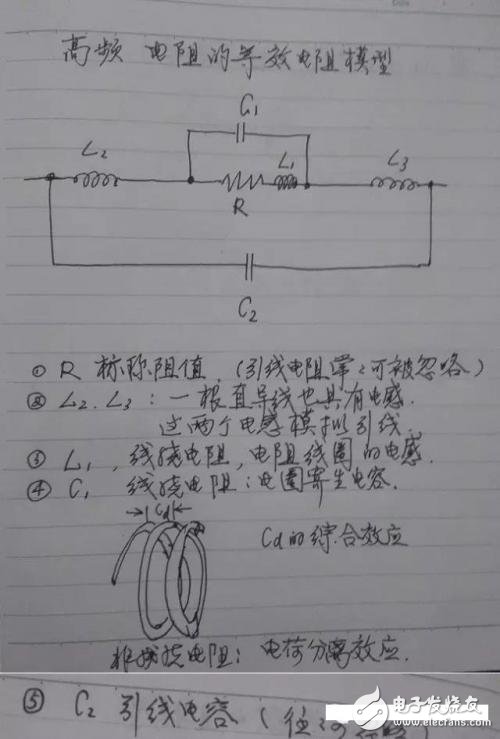 高频 电阻的等效电阻模型
C₁
L₂ L₁ L₃
R
C₂
① R 标称阻值.(引线电阻常常可被忽略)
② L₂.L₃:一根直导线也具有电感.
这两个电感模拟引线.
③ L₁,线绕电阻,电阻线圈的电感.
④ C₁ 线绕电阻:电圈寄生电容.
Cd
Cd的综合效应
非线绕电阻:电荷分离效应.
⑤ C₂ 引线电容(往
电子发烧友
www.elecfans.com